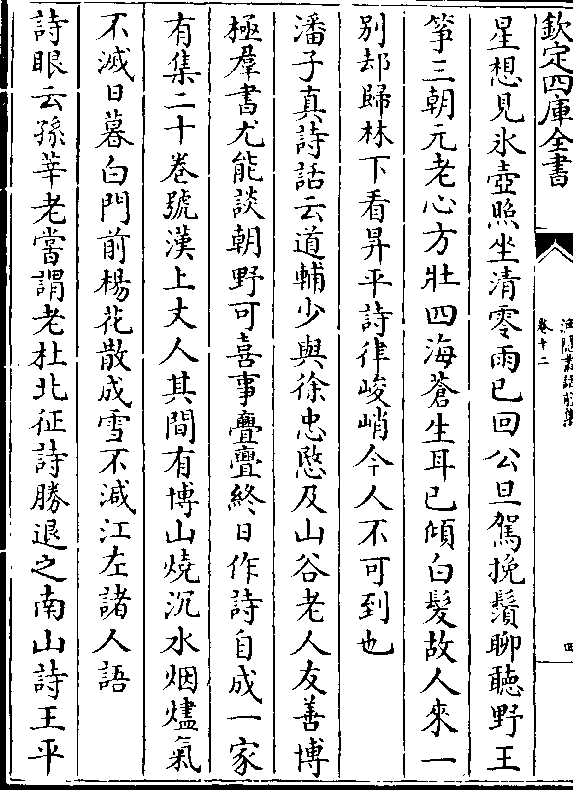 欽定四庫全書
漁隱叢話前集
卷十二
四
星想見氷壺照坐清零雨已回公旦駕挽鬚聊聽野王
箏三朝元老心方壯四海蒼生耳已傾白髮故人來一
别却歸林下看昇平詩律峻峭今人不可到也
潘子真詩話云道輔少與徐忠愍及山谷老人友善博
極羣書尤能談朝野可喜事亹亹終日作詩自成一家
有集二十卷號漢上丈人其間有博山燒沉水烟燼氣
不滅日暮白門前楊花散成雪不減江左諸人語
詩眼云孫莘老嘗謂老杜北征詩勝退之南山詩王平